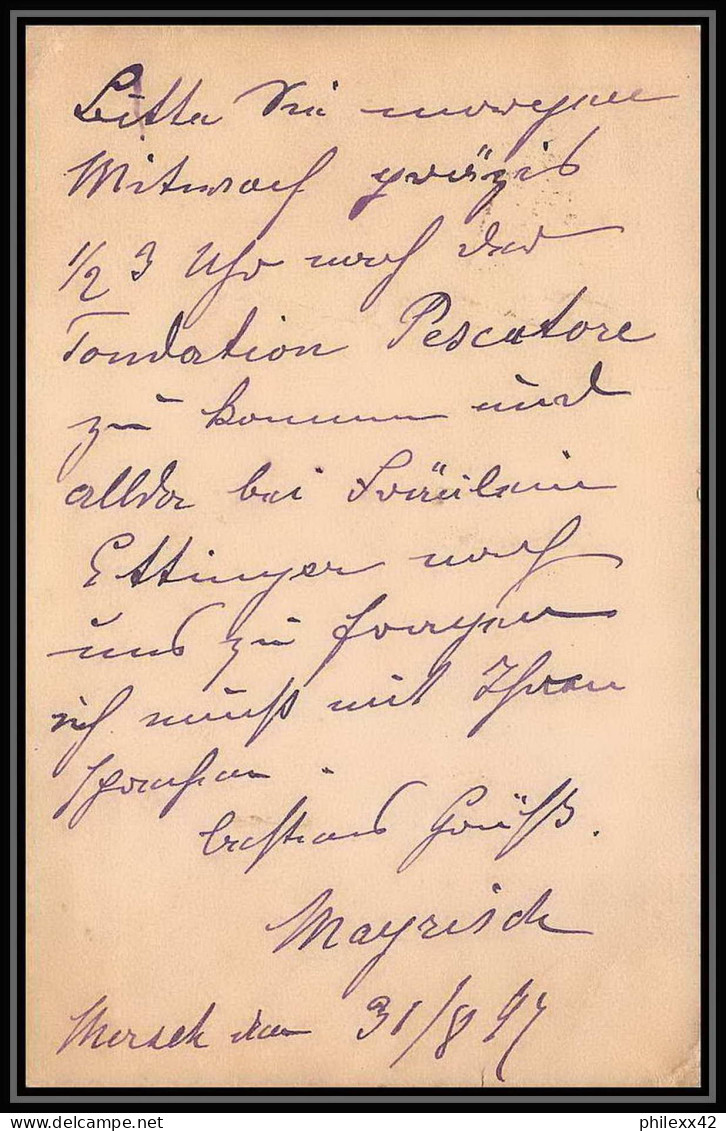 Bitte Sie morgen
Mitwoch präzis
1/2 3 Uhr nach der
Fondation Pescatore
zu kommen und
allda bei Fräulein
Ettinger nach
uns zu fragen
ich muß mit Ihnen
sprechen.
bestens Grüßt.
Mayrisch
Mersch den 31/8 97
philexx42